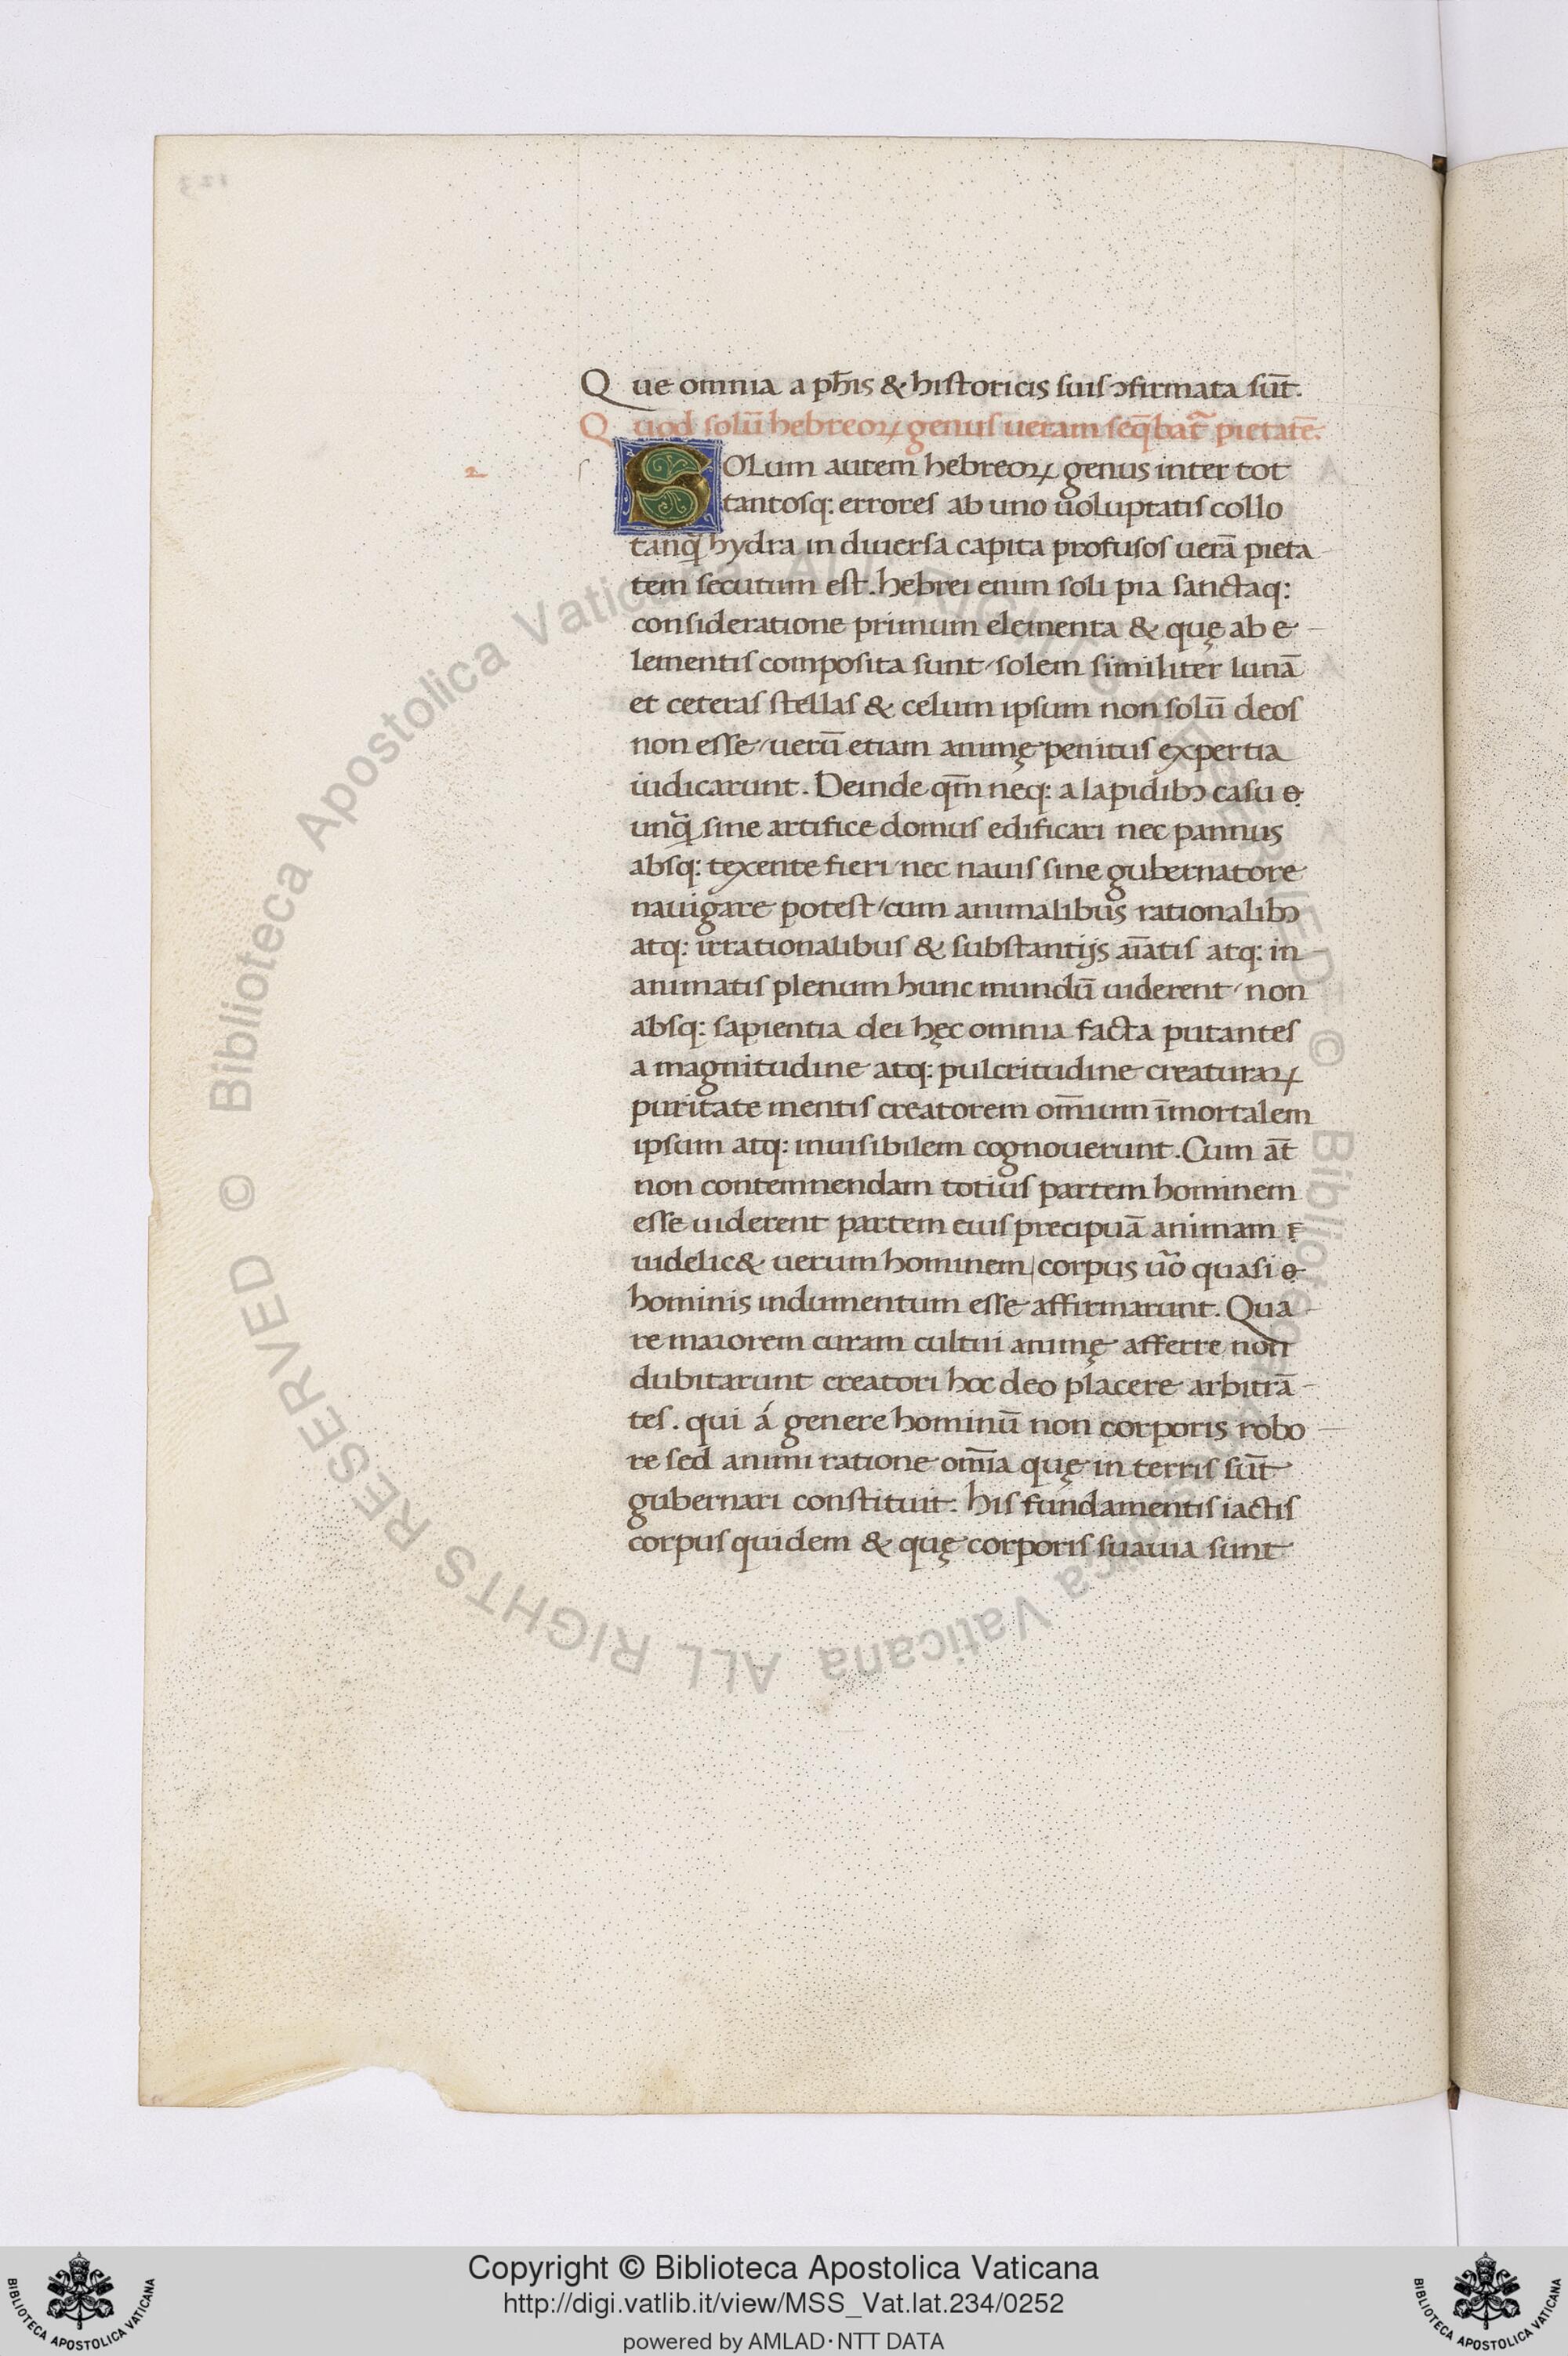 Que omnia a ph̄is & historicis suis ɔfirmata sūt.
Quod solū hebreoꝝ genus ueram seq̄bat᷑ pietatē.
2
SOLum autem hebreoꝝ genus inter tot
tantosq: errores ab uno uoluptatis collo
tanq̄ hydra in diuersa capita profusos uerā pieta
tem secutum est. hebrei enim soli pia sanctaq:
consideratione primum elementa & quę ab e
lementis composita sunt / solem similiter lunā
et ceteras stellas & celum ipsum non solū deos
non esse / uerū etiam animę penitus expertia
iudicarunt. Deinde qm̄ neq: a lapidibꝫ casu
unq̄ sine artifice domus edificari nec pannus
absq: texente fieri / nec nauis sine gubernatore
nauigare potest / cum animalibus rationalibꝫ
atq: irrationalibus & substantijs aīatis atq: in
animatis plenum hunc mundū uiderent / non
absq: sapientia dei hęc omnia facta putantes
a magnitudine atq: pulcritudine creaturaꝝ
puritate mentis creatorem om̄ium īmortalem
ipsum atq: inuisibilem cognouerunt. Cum āt
non contemnendam totius partem hominem
esse uiderent partem eius precipuā animam
uidelic& uerum hominem / corpus ūo quasi
hominis indumentum esse affirmarunt. Qua
re maiorem curam cultui animę afferre non
dubitarunt creatori hoc deo placere arbitrā
tes. qui á genere hominū non corporis robo
re sed animi ratione om̄ia quę in terris sūt
gubernari constituit. his fundamentis iactis
corpus quidem & quę corporis suauia sunt
© Biblioteca Apostolica Vaticana ALL RIGHTS RESERVED © Biblioteca Apostolica Vaticana ALL RIGHTS RESERVED
BIBLIOTECA APOSTOLICA VATICANA
Copyright © Biblioteca Apostolica Vaticana
http://digi.vatlib.it/view/MSS_Vat.lat.234/0252
powered by AMLAD·NTT DATA
BIBLIOTECA APOSTOLICA VATICANA